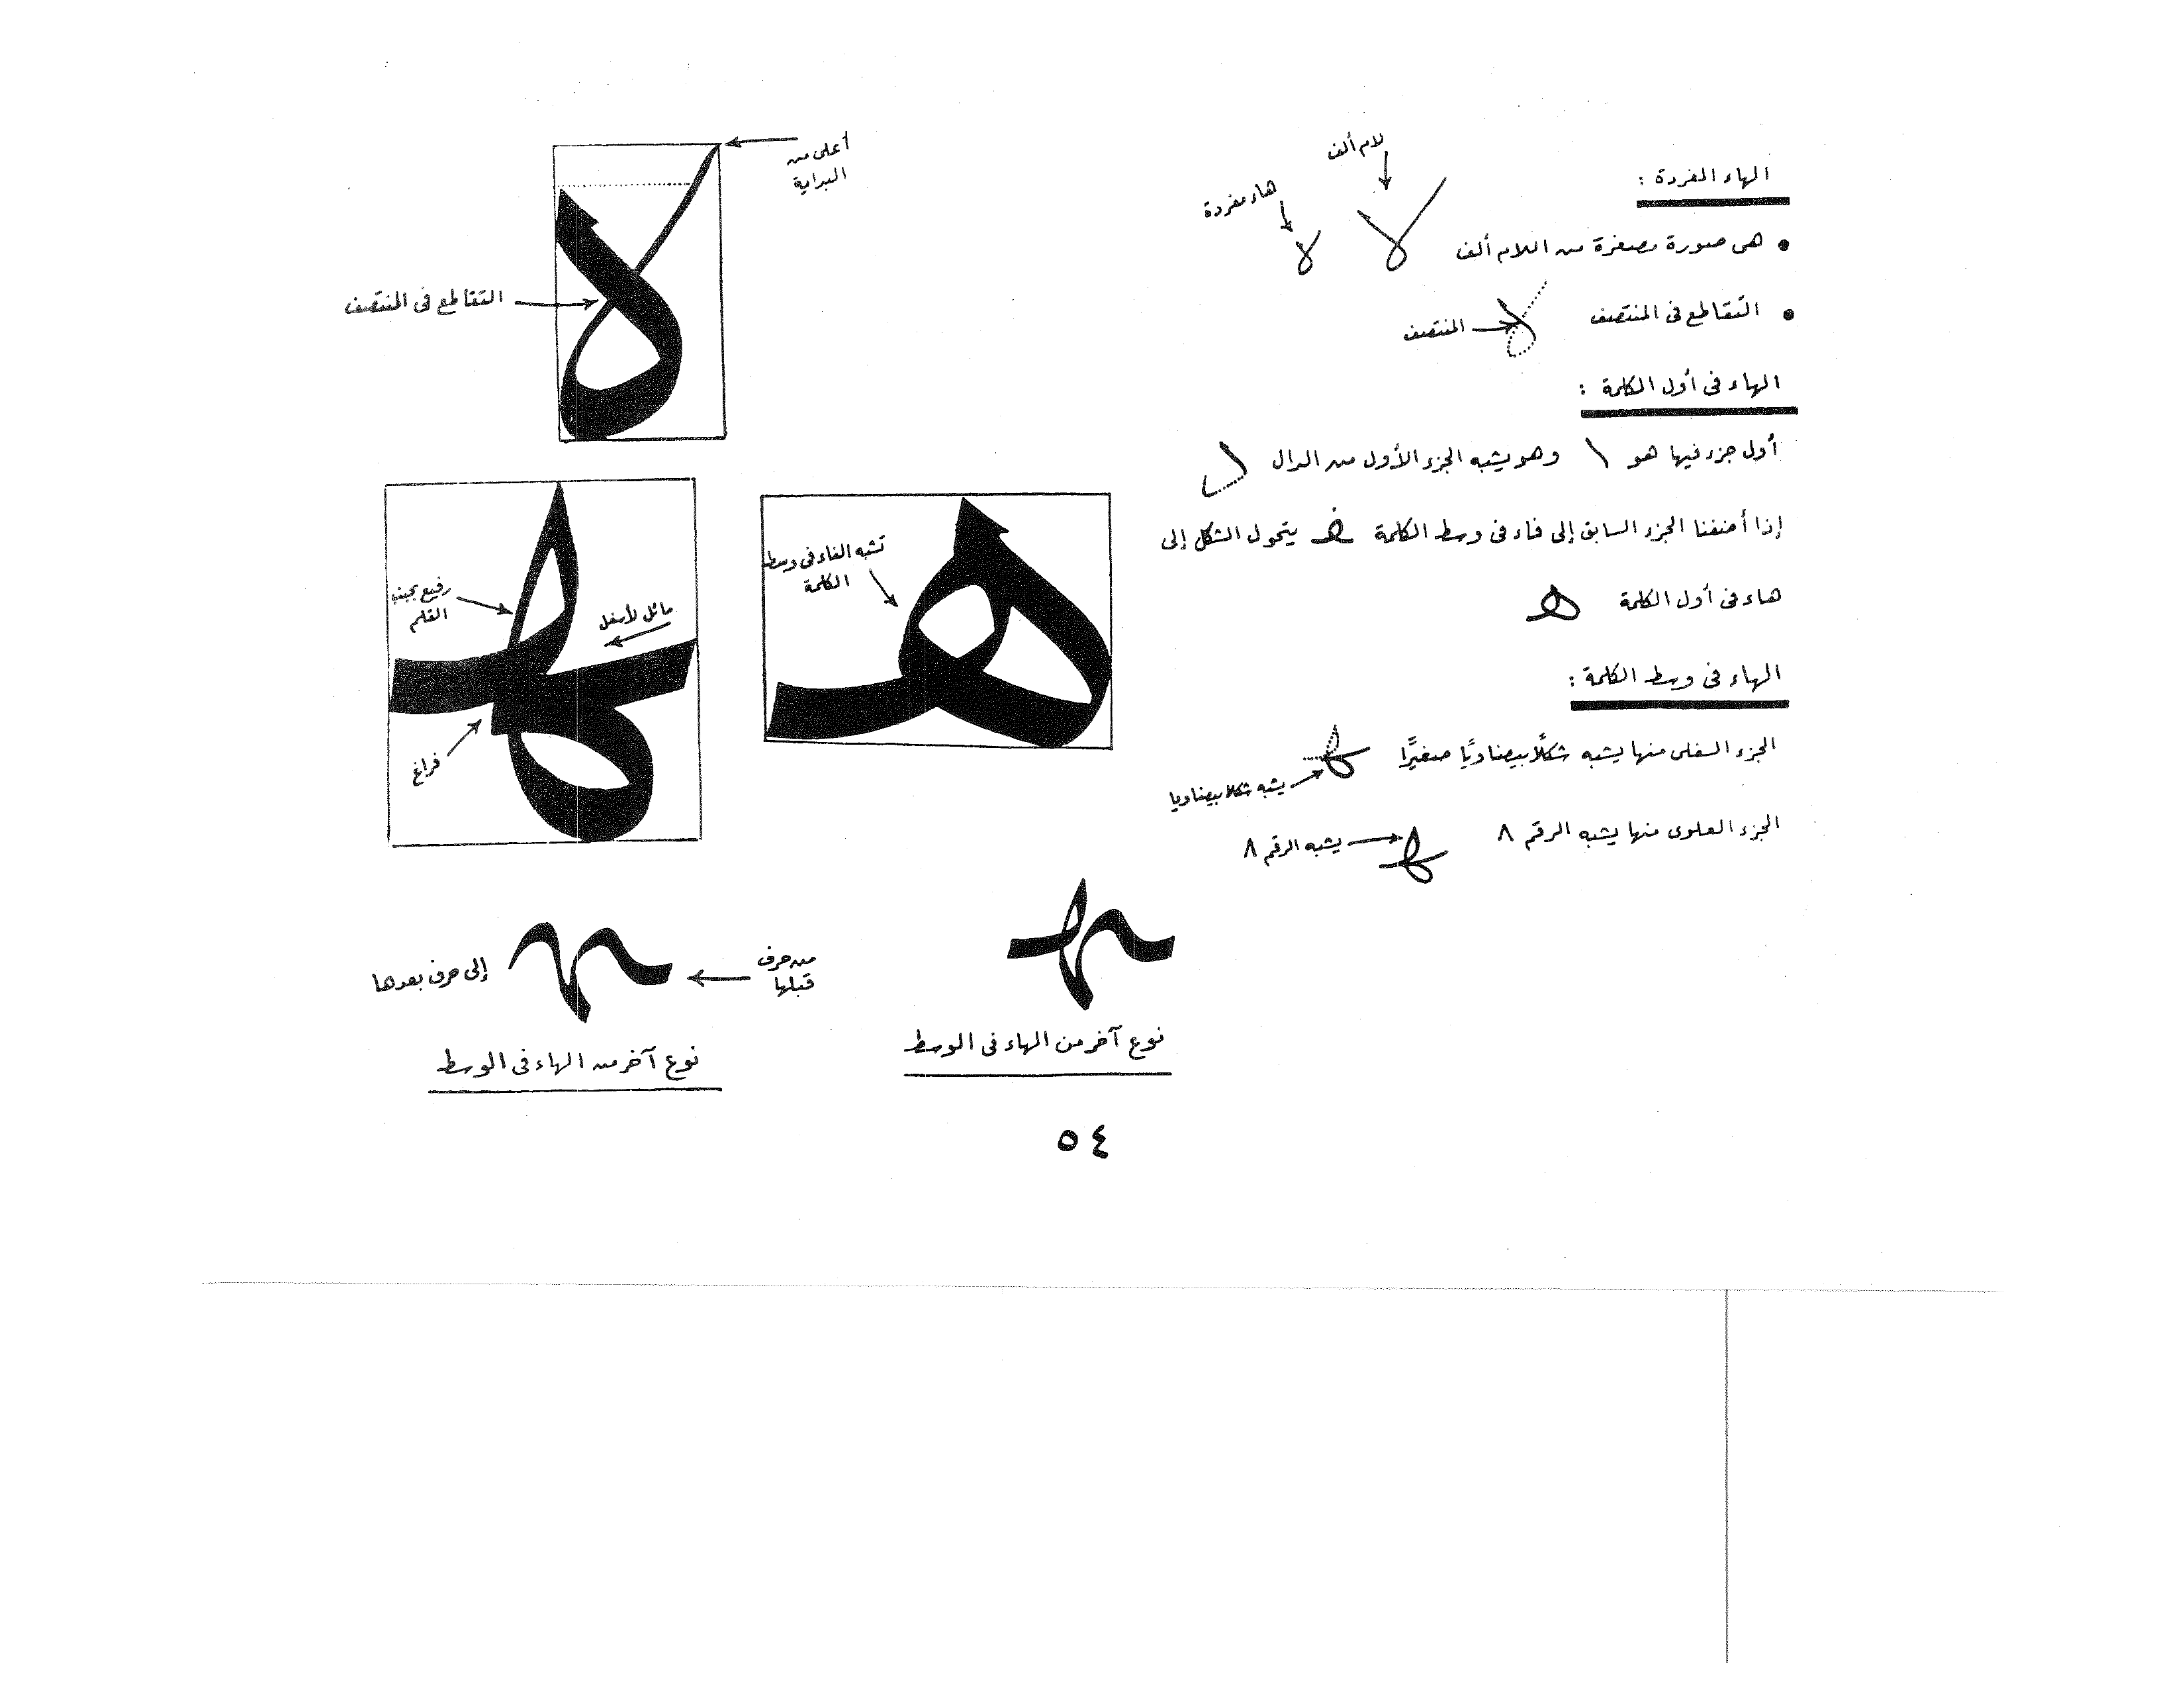 الهاء المفردة :
هى صورة مصغرة من اللام ألف
لام ألف
هاء مفردة
التقاطع فى المنتصف
المنتصف
الهاء فى أول الكلمة :
أول جزء فيها هو \ وهو يشبه الجزء الأول من الدال
إذا أضفنا الجزء السابق إلى فاء فى وسط الكلمة ـفـ يتحول الشكل إلى
هاء فى أول الكلمة هـ
الهاء فى وسط الكلمة :
الجزء السفلى منها يشبه شكلًا بيضاويًا صغيرًا ـهـ
يشبه شكلا بيضاويا
الجزء العلوى منها يشبه الرقم ٨ ـهـ
يشبه الرقم ٨
أعلى من
البداية
التقاطع فى المنتصف
ه
تشبه الفاء فى وسط
الكلمة
هـ
رفيع بجنب
القلم
مائل لأسفل
فراغ
ـهـ
ـهـ
نوع آخر من الهاء فى الوسط
من حرف
قبلها
ـهـ
إلى حرف بعدها
نوع آخر من الهاء فى الوسط
٥٤